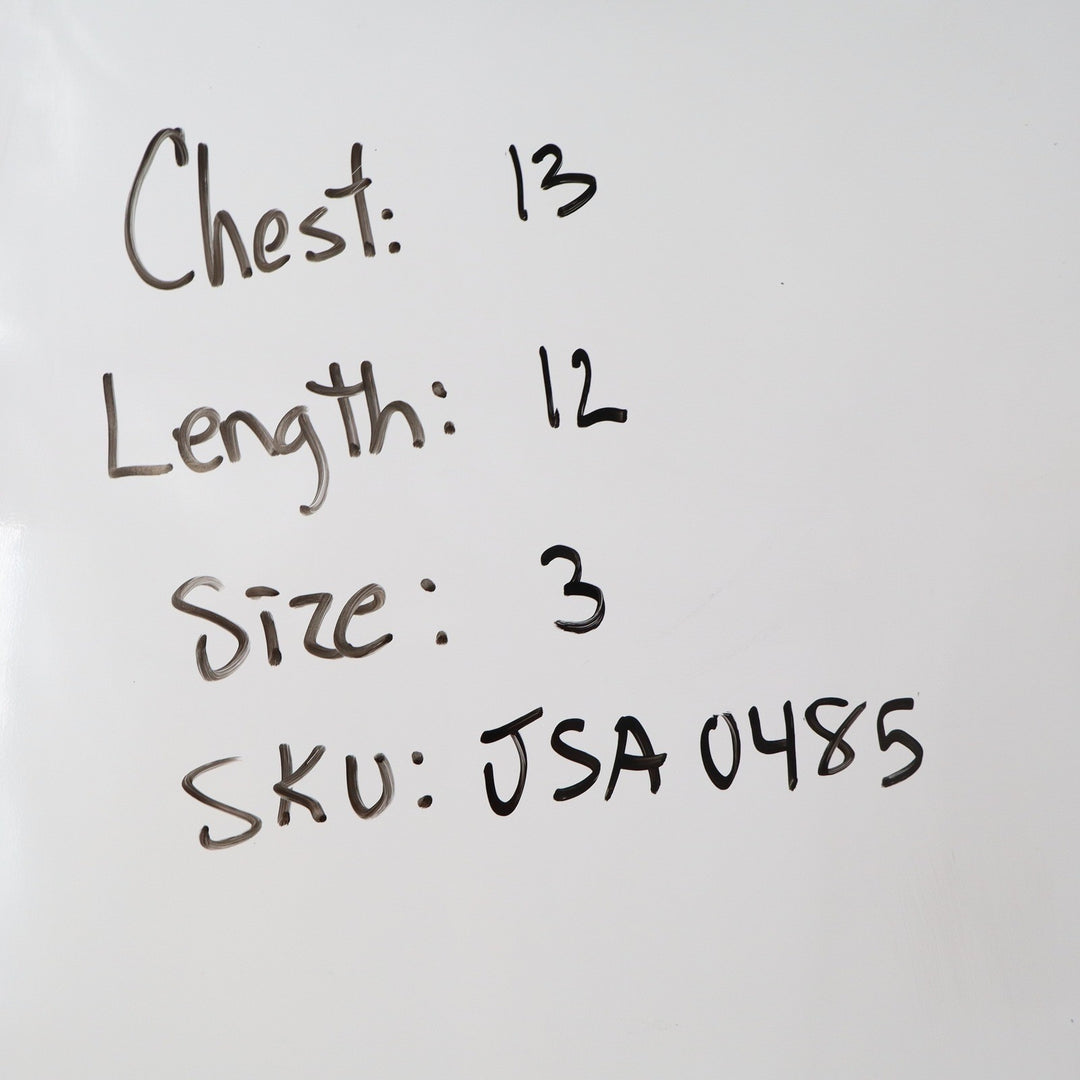 Chest: 13
Length: 12
Size: 3
SKU: JSA 0485